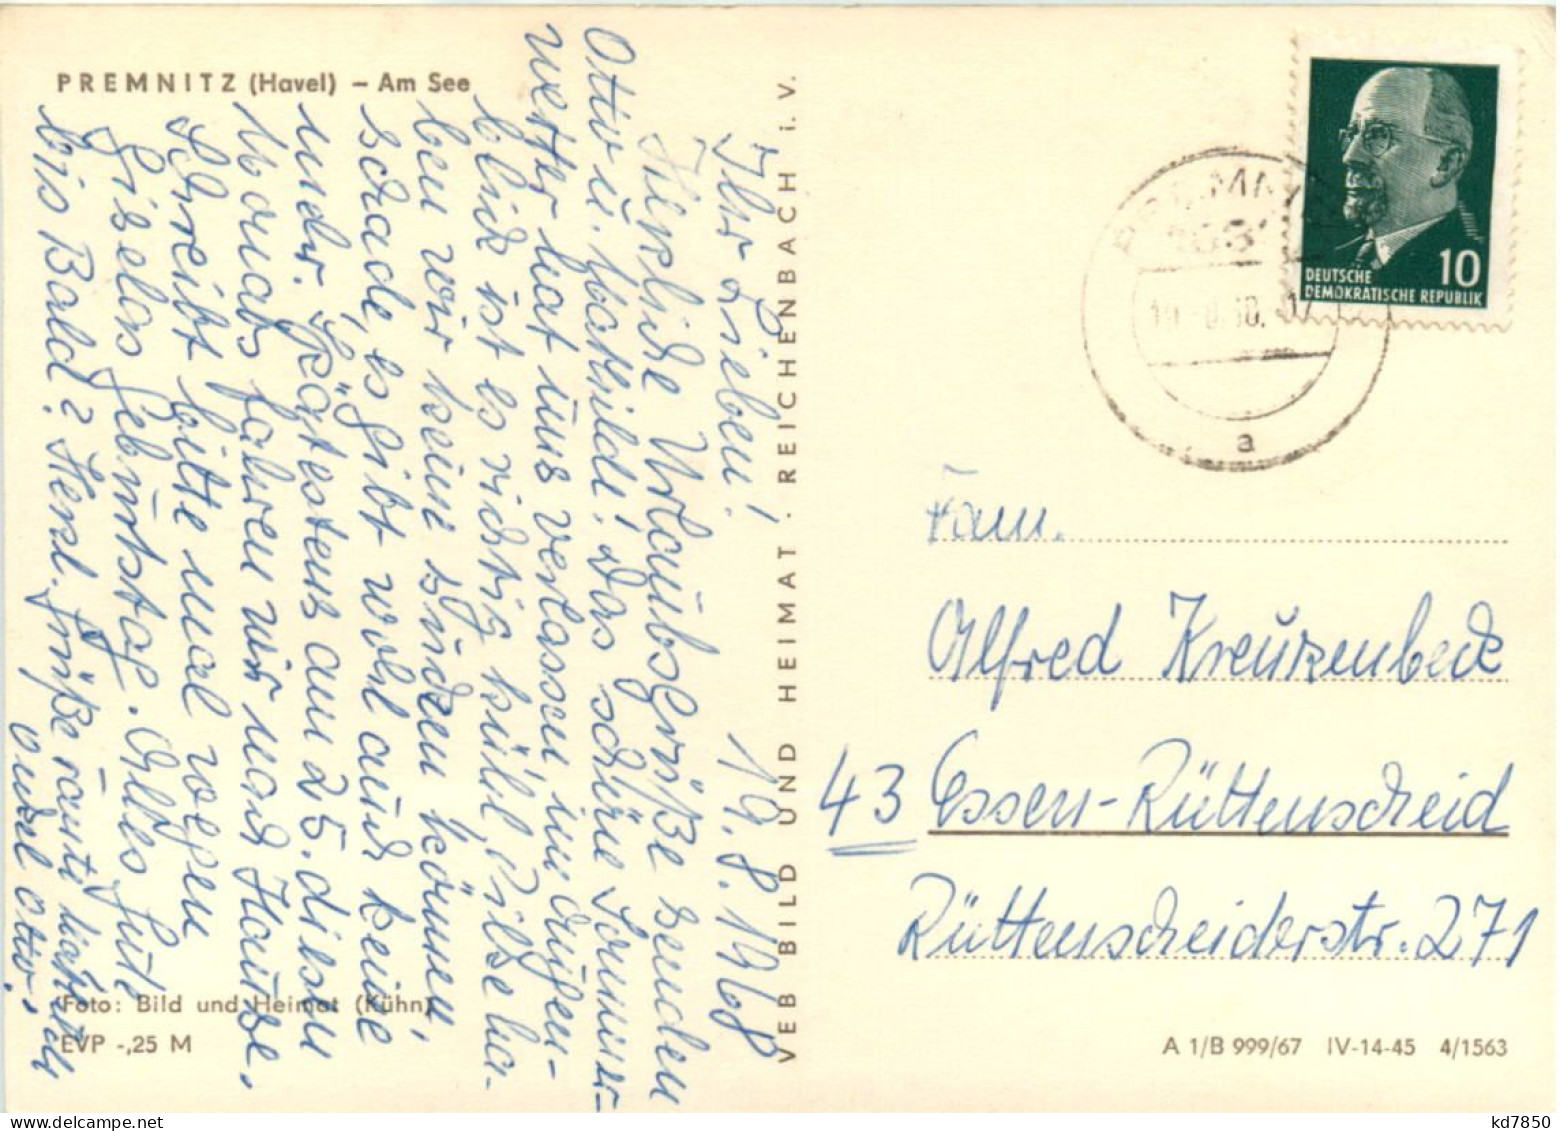 PREMNITZ (Havel) – Am See
19.8.1968
Ihr Lieben!
Herzliche Urlaubsgrüße senden
Otto u. Mathilde! Das schöne Sommer-
wetter hat uns verlassen, im Augen-
blick ist es richtig kühl, Pilze ha-
ben wir keine finden können,
schade, es gibt wohl auch keine
mehr. Spätestens am 25. diesen
Monats fahren wir nach Hause,
schreibt bitte mal wegen
Giselas Geburtstag. Alles Gute
bis Bald? Herzl. Grüße Tante
onkel otto!
Foto: Bild und Heimat (Kühn)
EVP -,25 M
VEB BILD UND HEIMAT · REICHENBACH i. V.
DEUTSCHE
DEMOKRATISCHE REPUBLIK
10
PREMNITZ
a
Fam.
Alfred Kreuzenbeck
43 Essen-Rüttenscheid
Rüttenscheiderstr. 271
A 1/B 999/67 IV-14-45 4/1563
kd7850